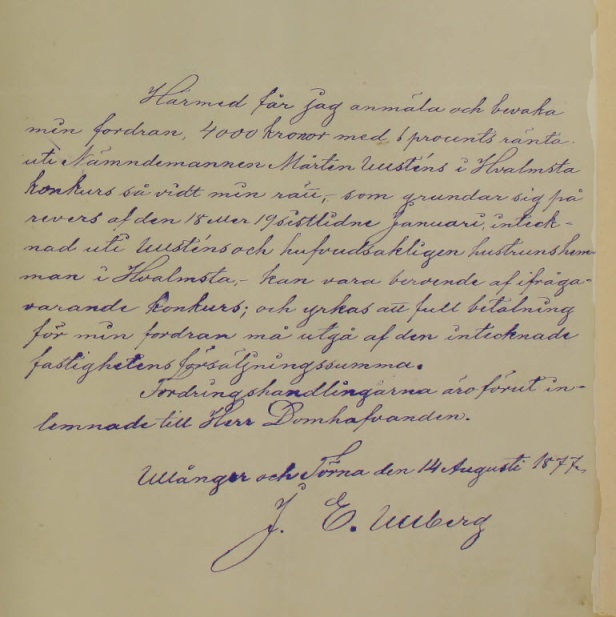 Härmed får jag anmäla och bevaka
min fordran, 4000 kronor med 6 procents ränta
uti Nämndemannen Mårten Wusténs i Hvalmsta
konkurs så vidt min rätt,- som grundar sig på
revers af den 18 eller 19 sistlidne Januari, inteck-
nad uti Wusténs och hufvudsakligen hustruns hem-
man i Hvalmsta,- kan vara beroende af ifråga-
varande konkurs; och yrkas att full betalning
för min fordran må utgå af den intecknade
fastighetens försäljningssumma.
Fordringshandlingarna äro förut in-
lemnade till Herr Domhafvanden.
Ullånger och Torna den 14 Augusti 1877.
J. E. Ullberg